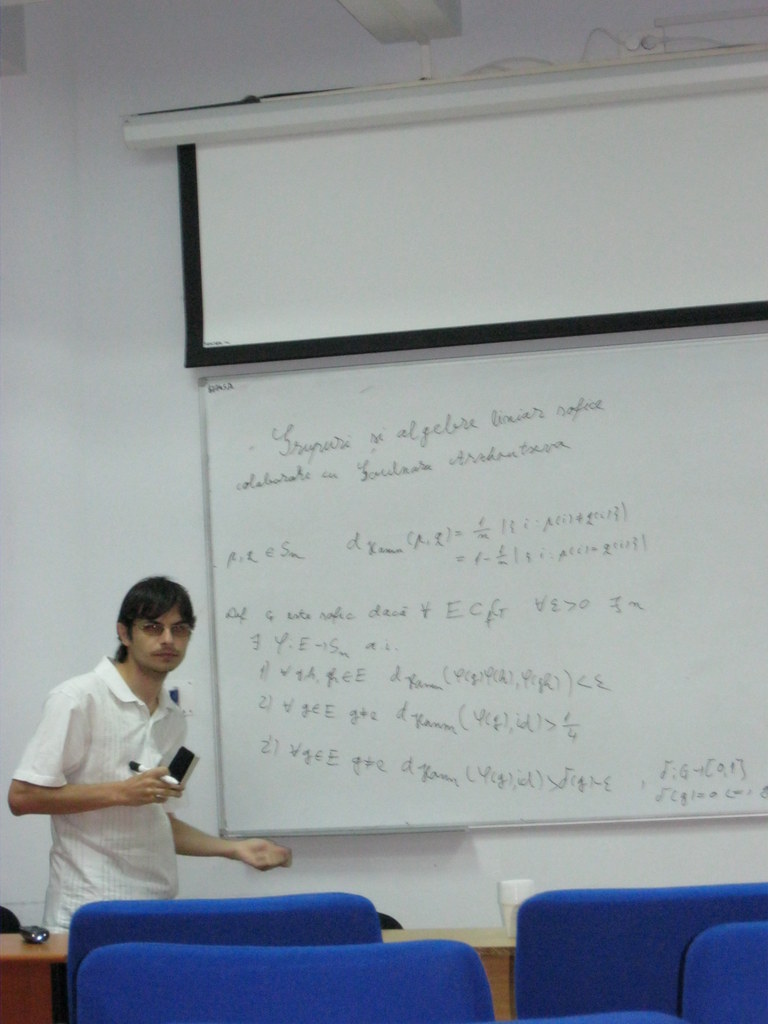 Grupuri si algebre liniar sofice
colaborare cu Goulnara Arzhantseva
p, q ∈ Sn   d_Hamm(p,q) = 1/n |{i : p(i) ≠ q(i)}|
= 1 - 1/n |{i : p(i) = q(i)}|
Def G este sofic dacă ∀ E ⊂f G ∀ε>0 ∃ n
∃ φ: E → Sn a.i.
1) ∀ g,h, gh ∈ E d_Hamm(φ(g)φ(h), φ(gh)) < ε
2) ∀ g∈E g≠e d_Hamm(φ(g), id) > 1/4
2') ∀ g∈E g≠e d_Hamm(φ(g), id) > δ(g)-ε , δ: G→[0,1]
δ(g)=0 (=)